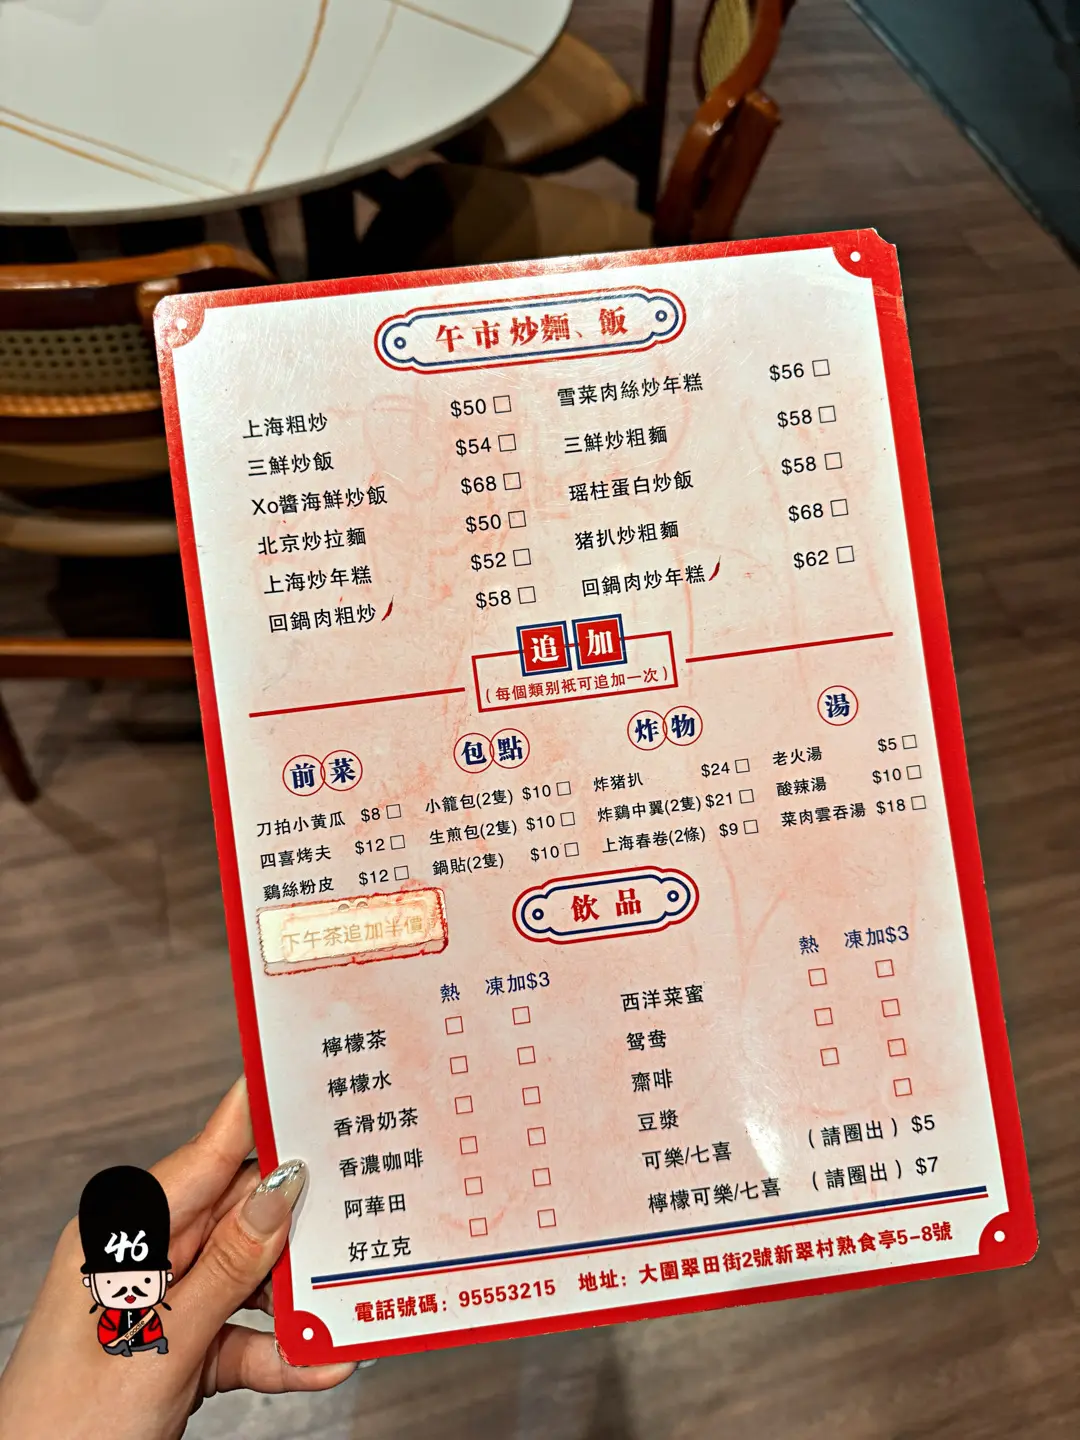 午市炒麵、飯
上海粗炒 $50 □
三鮮炒飯 $54 □
Xo醬海鮮炒飯 $68 □
北京炒拉麵 $50 □
上海炒年糕 $52 □
回鍋肉粗炒 $58 □
雪菜肉絲炒年糕 $56 □
三鮮炒粗麵 $58 □
瑤柱蛋白炒飯 $58 □
猪扒炒粗麵 $68 □
回鍋肉炒年糕 $62 □
追加
(每個類別衹可追加一次)
前菜
刀拍小黄瓜 $8 □
四喜烤夫 $12 □
鷄絲粉皮 $12 □
下午茶追加半價
包點
小籠包(2隻) $10 □
生煎包(2隻) $10 □
鍋貼(2隻) $10 □
炸物
炸猪扒 $24 □
炸鷄中翼(2隻) $21 □
上海春卷(2條) $9 □
湯
老火湯 $5 □
酸辣湯 $10 □
菜肉雲吞湯 $18 □
飲品
熱 凍加$3
檸檬茶 □ □
檸檬水 □ □
香滑奶茶 □ □
香濃咖啡 □ □
阿華田 □ □
好立克 □ □
熱 凍加$3
西洋菜蜜 □ □
鴛鴦 □ □
齋啡 □ □
豆漿 □
可樂/七喜 (請圈出) $5
檸檬可樂/七喜 (請圈出) $7
電話號碼: 95553215 地址: 大圍翠田街2號新翠村熟食亭5-8號
46